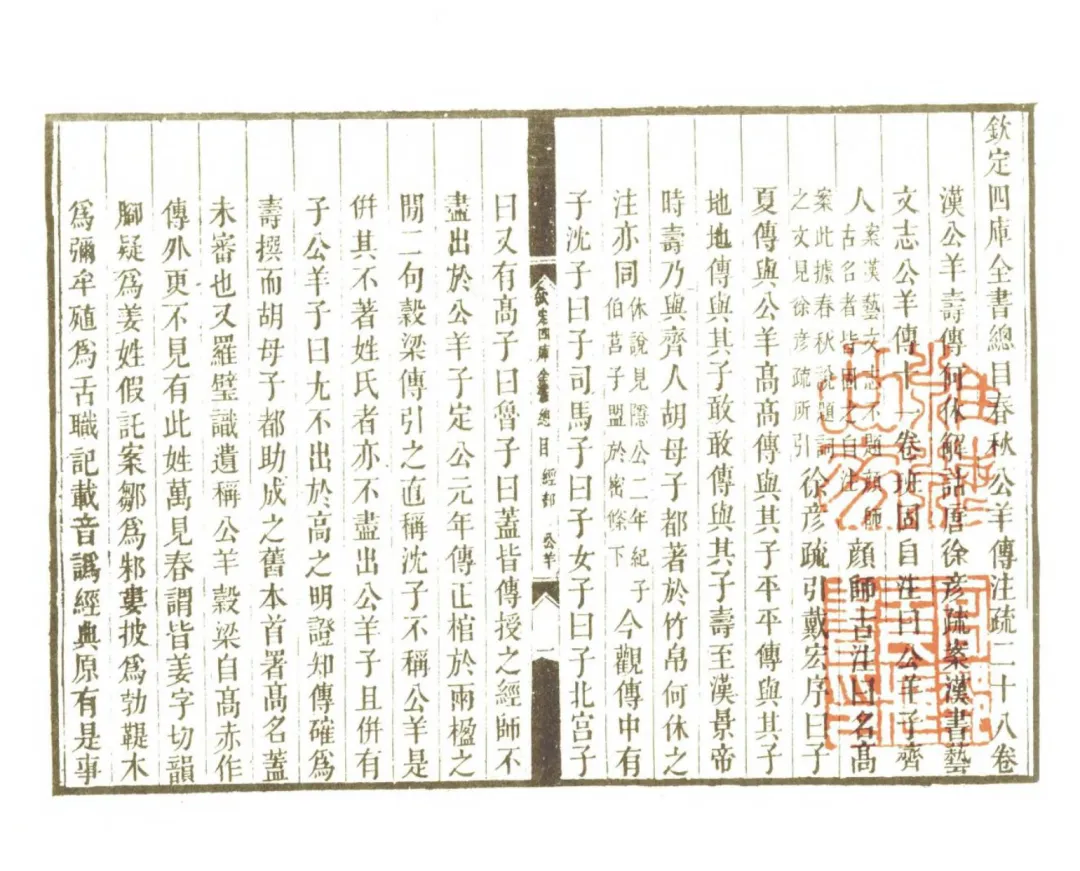 欽定四庫全書總目春秋公羊傳注疏二十八卷
漢公羊壽傳何休解詁唐徐彥疏案漢書藝
文志公羊傳十一卷班固自注曰公羊子齊
人案漢藝文志不題顏師古名者皆固之自注顏師古注曰名高
案此據春秋說題詞之文見徐彥疏所引徐彥疏引戴宏序曰子
夏傳與公羊高高傳與其子平平傳與其子
地地傳與其子敢敢傳與其子壽至漢景帝
時壽乃與齊人胡母子都著於竹帛何休之
注亦同休說見隱公二年紀子伯莒子盟於密條下今觀傳中有
子沈子曰子司馬子曰子女子曰子北宮子
欽定四庫全書總目 經部 公羊 一
曰又有高子曰魯子曰蓋皆傳授之經師不
盡出於公羊子定公元年傳正棺於兩楹之
閒二句穀梁傳引之直稱沈子不稱公羊是
併其不著姓氏者亦不盡出公羊子且併有
子公羊子曰尤不出於高之明證知傳確為
壽撰而胡母子都助成之舊本首署高名蓋
未審也又羅璧識遺稱公羊穀梁自高赤作
傳外更不見有此姓萬見春謂皆姜字切韻
腳疑為姜姓假託案鄒為邾婁披為勃鞮木
為彌牟殖為舌職記載音譌經典原有是事